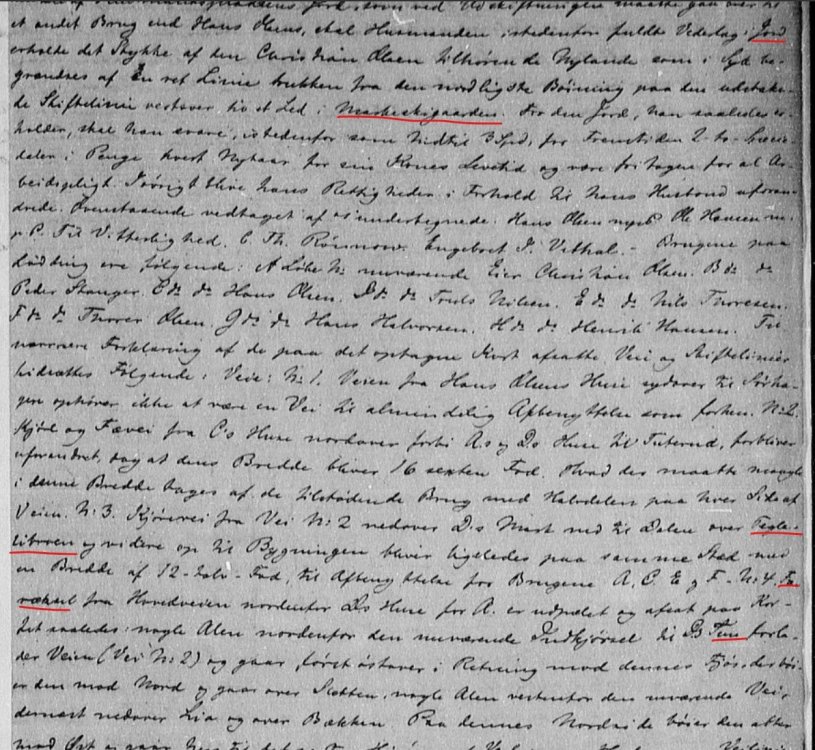 et andet Brug end Hans Olsens, skal Husmanden istedenfor fuldt Vederlag i Jord
erholde det Stykke af den Christian Olsen tilhørende Nylænde som i Syd be-
grændses af en ret Linie trukken fra den nordligste Bøining paa den udstuk-
de Skiftelinie vestover til et Led i Mærkeskigaarden. For den Jord, han saaledes er-
holder, skal han svare, istedenfor som hidtil 3 Spd, for Fremtiden 2-to-Specie-
daler i Penge hvert Nytaar for sin Kones Levetid og være fritagen for al Ar-
beidspligt. Iøvrigt blive hans Rettigheder i Forhold til hans Husbond uforan-
drede. Ovenstaaende vedtaget af os undertegnede. Hans Olsen Ole Hansen m.
p. P. Til Vitterlighed. C. Th. Rønnow. Engebret P. Vethal. - Brugene paa
Ludding ere følgende: A Løbe No nuværende Eier Christian Olsen. B do do
Peder Stanger. C do do Hans Olsen. D do do Trols Nilsen. E do do Nils Thoresen.
F do do Thorer Olsen. G do do Hans Halvorsen. H do do Henrik Hansen. Til
nærmere Forklaring af de paa det optagne Kort afsatte Veie og Skiftelinier
hidsættes Følgende: Veie: No 1. Veien fra Hans Olsens Huse sydover til
ophører ikke at være en Vei til almindelig Afbenyttelse som forhen. No 2.
Kjøre og Fævei fra C's Huse nordover forbi A.s og D.s Huse til forbliver
uforandret, dog at dens Bredde bliver 16 sexten Fod. Hvad der maatte mangle
i denne Bredde tages af de tilstødende Brug med Halvdelen paa hver Side af
Veien. No 3. Kjørevei fra Vei No 2 nedover D.s Mark ned til Dalen over Tegle-
og videre op til Bygningen bliver ligeledes paa samme Sted med
en Bredde af 12-tolv-Fod, til Afbenyttelse for Brugene A, C, E og F - No 4. Fæ
fra Hovedveien nordenfor D.s Huse for A. er udpælet og afsat paa Kor-
tet saaledes: nogle Alen nordenfor den nuværende Indkjørsel til B's Tun forla-
der Veien (Vei No 2) og gaar, først østover i Retning mod dennes Fjøs, der bøi-
er den mod Nord og gaar over Sletten, nogle Alen vestenfor den nuværende Vei,
dernæst nedover Lia og over Bækken. Paa dennes Nordside bøier den atter
mod Øst og gaar